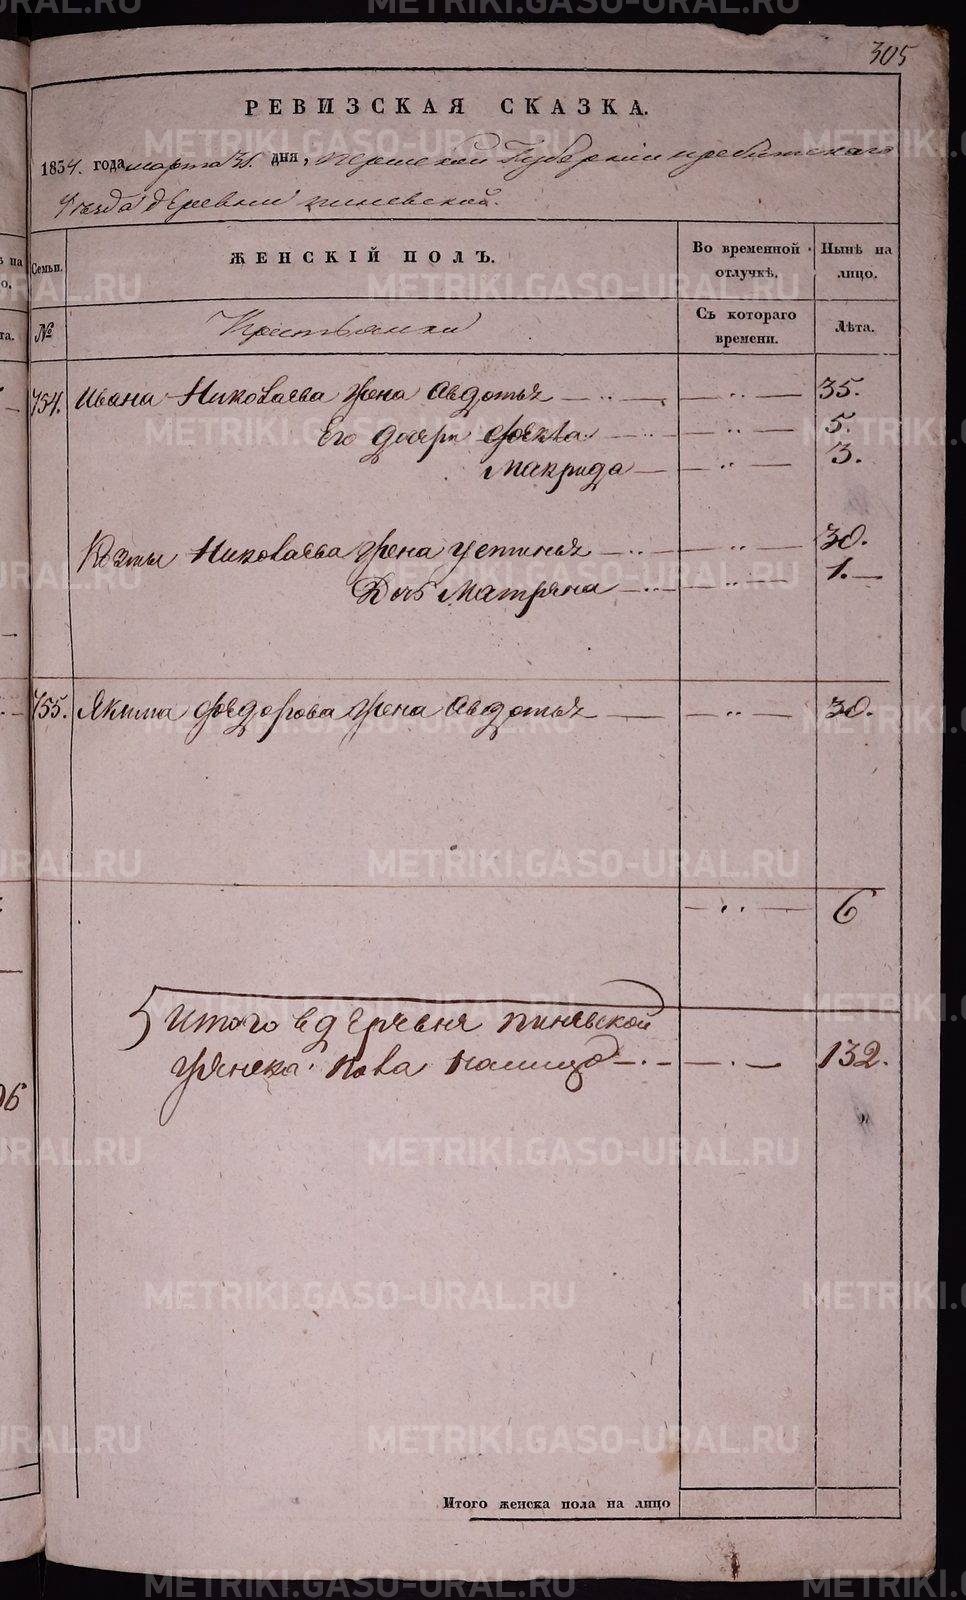 305
РЕВИЗСКАЯ СКАЗКА.
1834. года марта 31. дня, Пермской Губернии Ирбитскаго
Уезда деревни Пиневской.
Семьи. ЖЕНСКІЙ ПОЛЪ. Во временной отлучкѣ. Нынѣ на лицо.
№ Крестьянки Съ котораго времени. Лѣта.
754. Ивана Николаева жена Авдотья — „ — 35.
Его дочери Фекла — „ — 5.
Макрида — „ — 3.
Козмы Николаева жена Устинья — „ — 30.
Дочь Матрена — „ — 1.
755. Якима Федорова жена Авдотья — „ — 30.
— „ — 6
Итого в деревне Пиневской
женска пола налицо — „ — 132.
Итого женска пола на лицо
METRIKI.GASO-URAL.RU